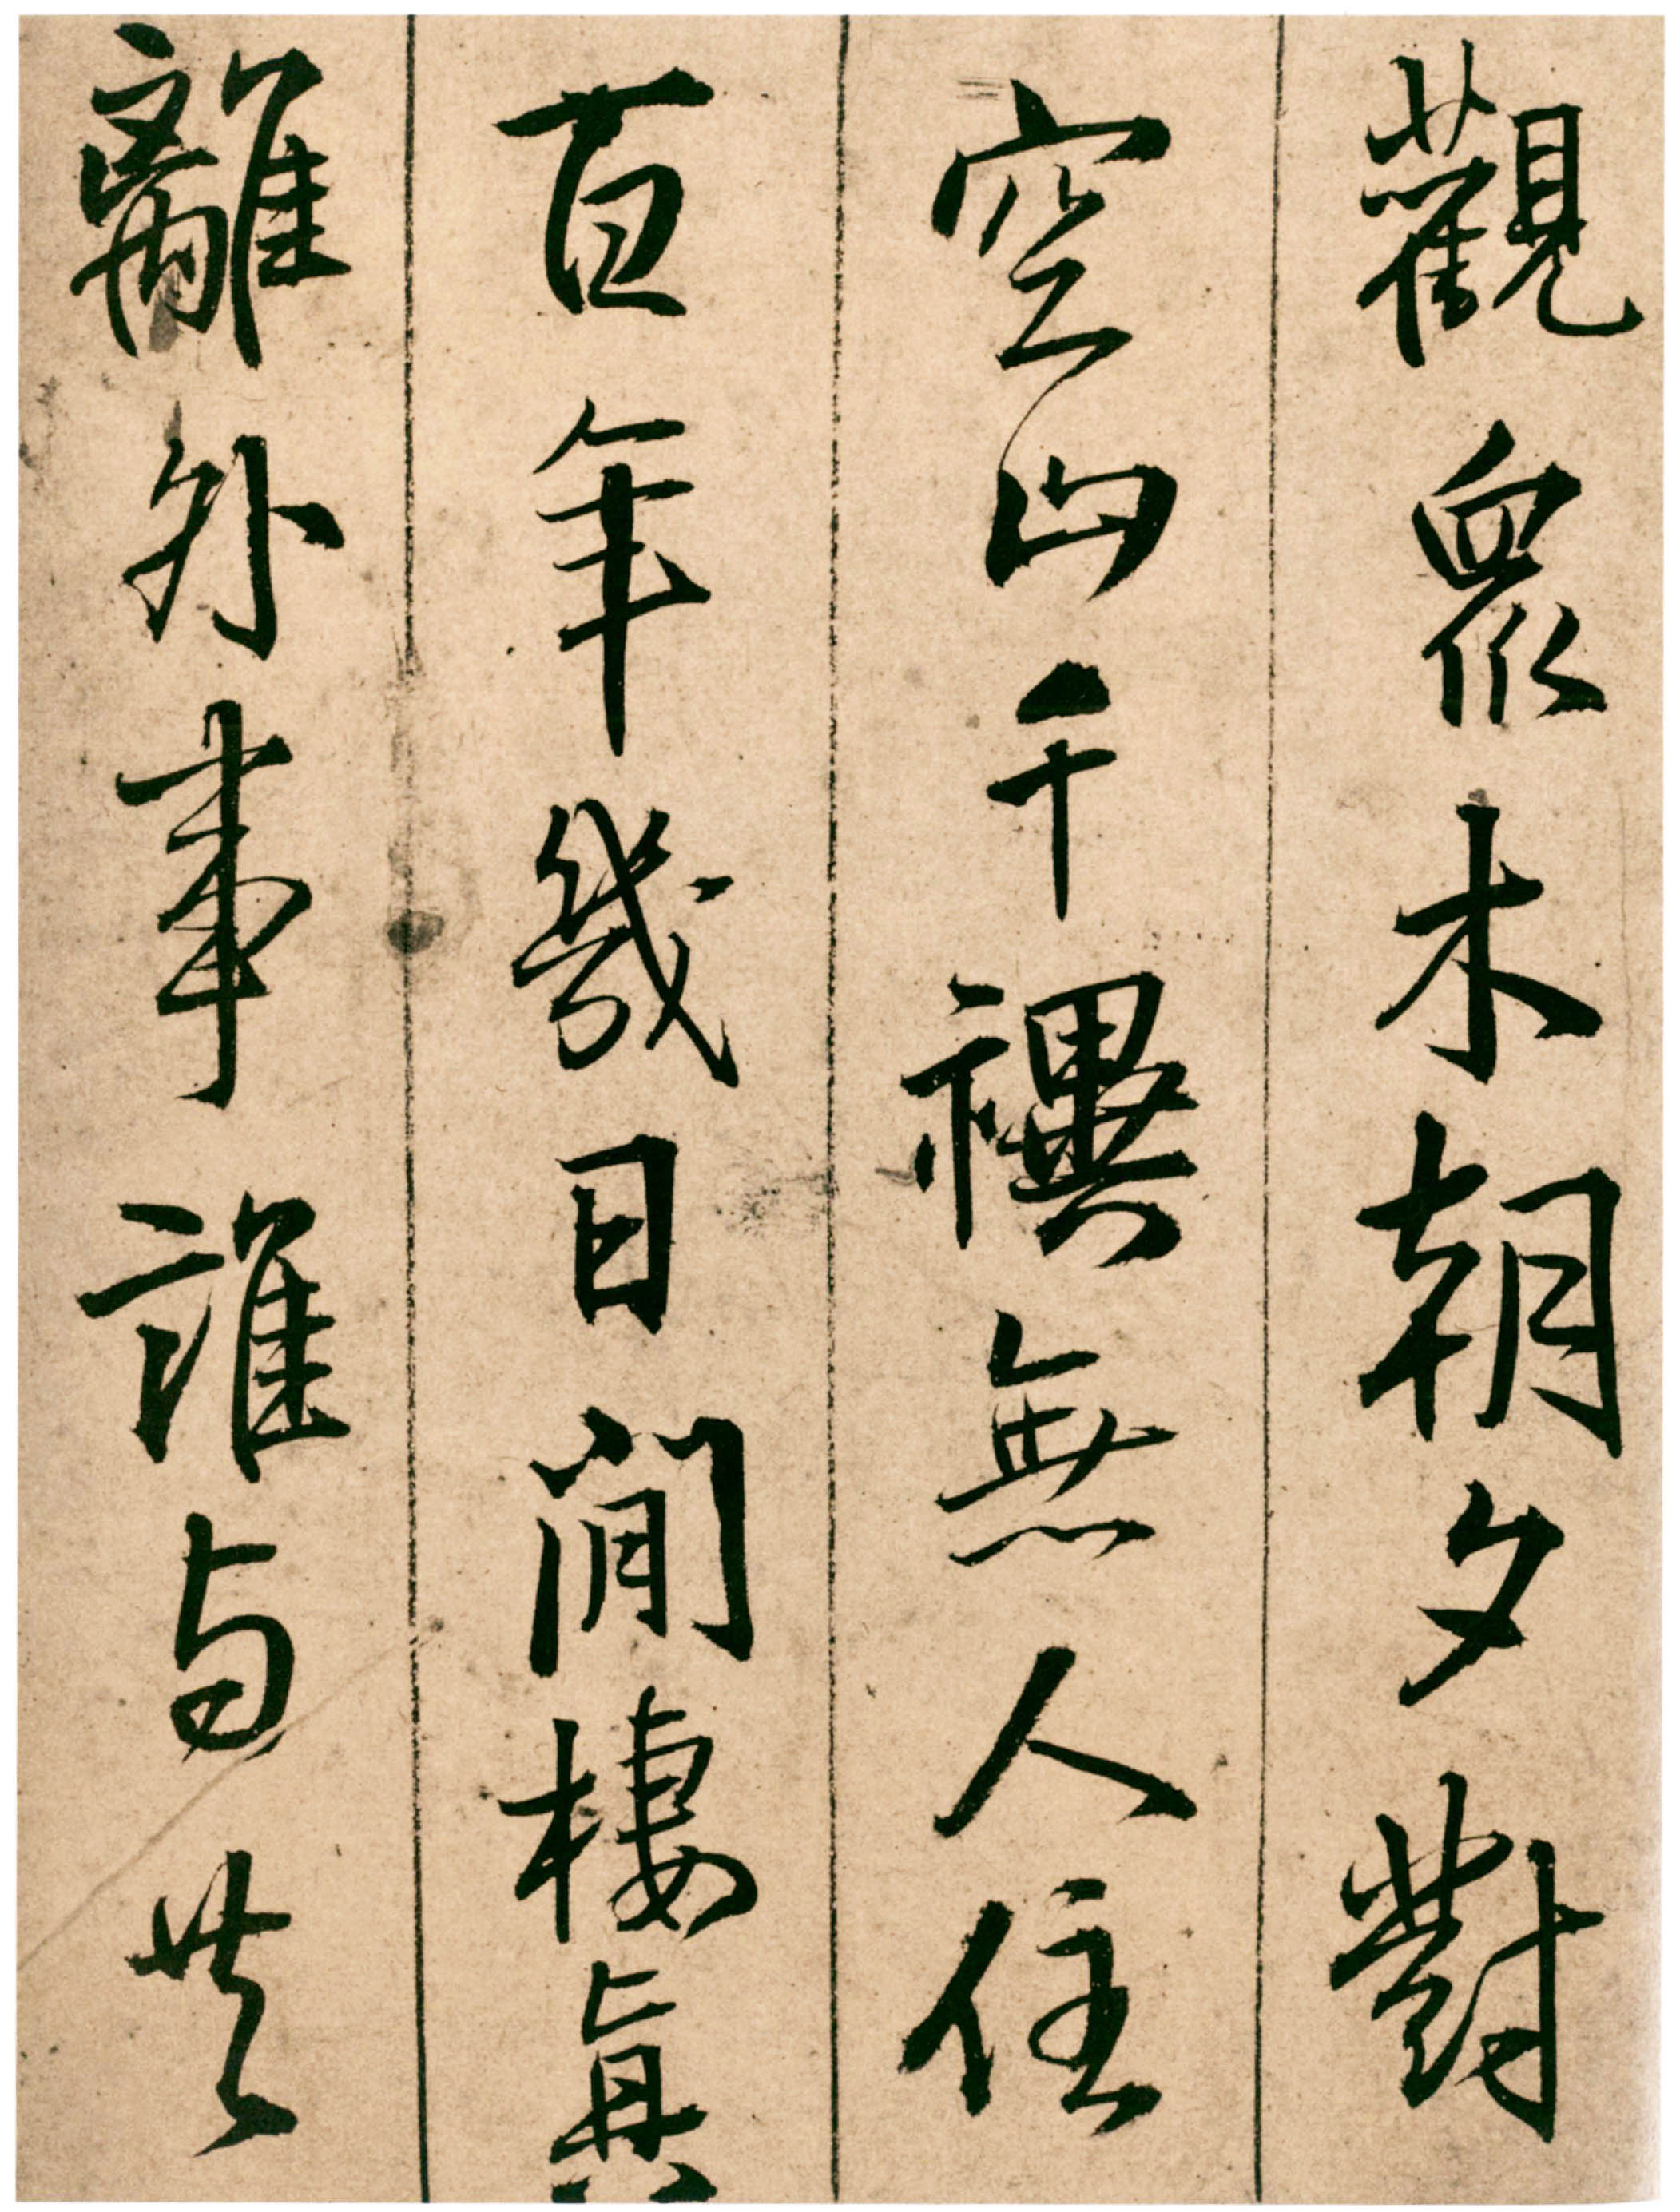 觀衆木朝夕對
空山千禩無人住
百年幾日閒棲真
離外事誰与共